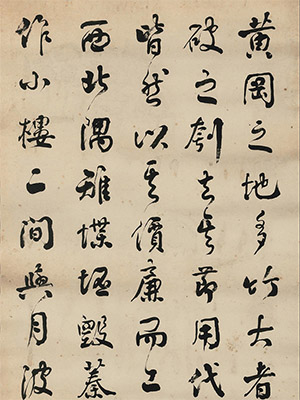 黃岡之地多竹大者
破之刳去其節用代
皆然以其價廉而工
西北隅雉堞圮毀蓁
作小樓二間與月波